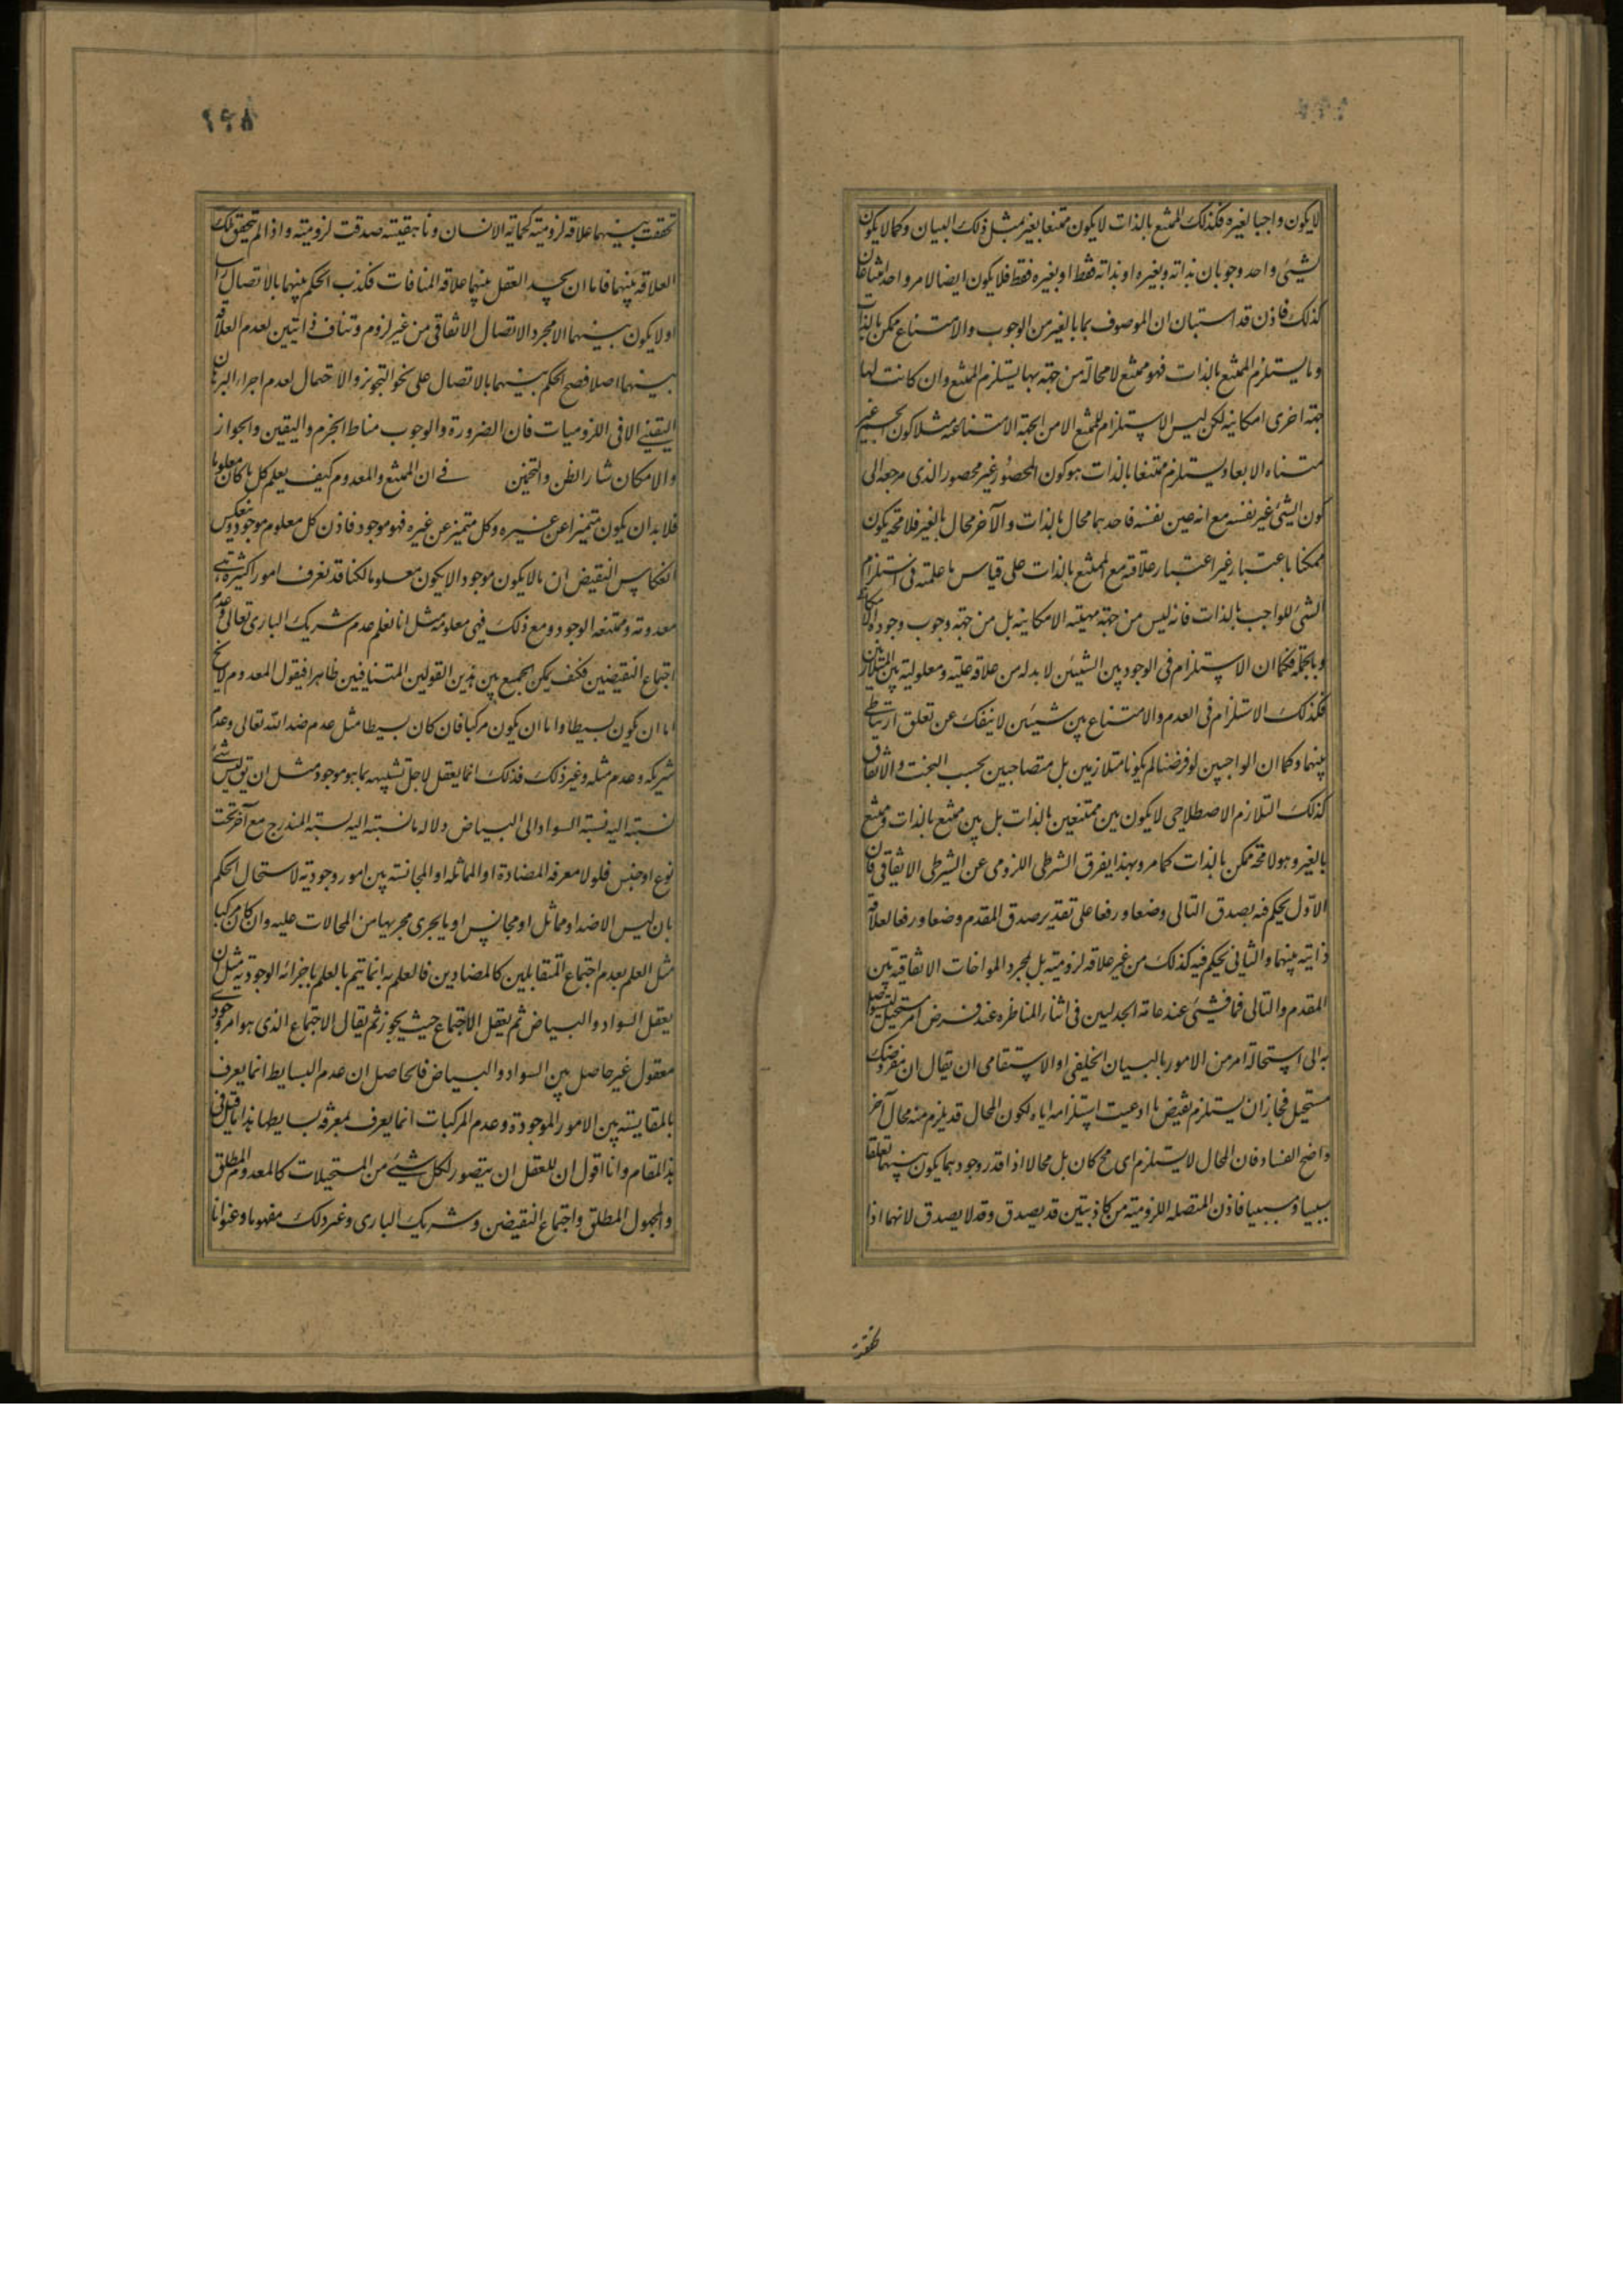 لا يكون واجبا لغيره فكذلك الممتنع بالذات لا يكون ممتنعا بغيره بمثل ذلك البيان وكما لا يكون
لشيئ واحد وجوبان بذاته وبغيره او بذاته فقط او بغيره فقط فلا يكون ايضا لامر واحد امتناعان
كذلك فاذن قد استبان ان الموصوف بما بالغير من الوجوب والامتناع ممكن بالذات
وما يستلزم الممتنع بالذات فهو ممتنع لا محالة من جهة بها يستلزم الممتنع وان كانت لها
جهة اخرى امكانيه لكن ليس الاستلزام للممتنع الا من الجهة الامتناعيه مثلا كون الجسم غير
متناه الابعاد يستلزم ممتنعا بالذات هو كون المحصور غير محصور الذى مرجعه الى
كون الشيئ غير نفسه مع انه عين نفسه فاحدهما محال بالذات والآخر محال بالغير فلا محة يكون
ممكنا باعتبار غير اعتبار علاقته مع الممتنع بالذات على قياس ما علمته فى استلزام
الشيئ للواجب بالذات فانه ليس من جهة مهيته الامكانيه بل من جهة وجوب وجوده الامكانى
وبالجملة فكما ان الاستلزام فى الوجود بين الشيئين لا بد له من علاقه علية ومعلولية بين المتلازمين
فكذلك الاستلزام فى العدم والامتناع بين شيئين لا ينفك عن تعلق ارتباطى
بينهما وكما ان الواجبين لو فرضنا لم يكونا متلازمين بل متصاحبين بحسب البخت والاتفاق
كذلك التلازم الاصطلاحى لا يكون بين ممتنعين بالذات بل بين ممتنع بالذات وممتنع
بالغير وهو لا محة ممكن بالذات كما مر وبهذا يفرق الشرطى اللزومى عن الشرطى الاتفاقى فان
الاول يحكم فيه بصدق التالى وضعا ورفعا على تقدير صدق المقدم وضعا ورفعا لعلاقة
ذاتيه بينهما والثانى يحكم فيه كذلك من غير علاقه لزوميه بل بمجرد المواخات الاتفاقيه بين
المقدم والتالى فما فشئى عند عامة الجدليين فى اثناء المناظره عند فرض امر مستحيل ليتوصل
به الى استحالة امر من الامور بالبيان الخلفى او الاستقامى ان يقال ان مفروضك
مستحيل فجاز ان يستلزم نقيض ما ادعيت استلزامه اياه لكون المحال قد يلزم منه محال آخر
واضح الفساد فان المحال لا يستلزم اى مح كان بل محالا اذا قدر وجودهما يكون بينهما تعلقا
سببيا ومسببيا فاذن المتصله اللزوميه من كاذبتين قد يصدق وقد لا يصدق لانهما اذا
تحققت
٢٩٨
تحققت بينهما علاقه لزوميه كحمارية الانسان وناهقيته صدقت لزوميته واذا لم تتحقق تلك
العلاقه بينهما فاما ان يجد العقل بينهما علاقه المنافات فكذب الحكم بينهما بالاتصال راسا
او لا يكون بينهما الا مجرد الاتصال الاتفاقى من غير لزوم وتناف ذاتيين لعدم العلاقة
بينهما اصلا فصح الحكم بينهما بالاتصال على نحو التجويز والاحتمال لعدم اجراء البرهان
اليقينى الا فى اللزوميات فان الضرورة والوجوب مناط الجزم واليقين والجواز
والامكان مثار الظن والتخمين فى ان الممتنع والمعدوم كيف يعلم كل ما كان معلوما
فلا بد ان يكون متميزا عن غيره وكل متميز عن غيره فهو موجود فاذن كل معلوم موجود وينعكس
انعكاس النقيض ان ما لا يكون موجودا لا يكون معلوما لكنا قد نعرف امورا كثيرة هى
معدومة وممتنعة الوجود ومع ذلك فهى معلومه مثل انا نعلم عدم شريك البارى تعالى وعدم
اجتماع النقيضين فكيف يمكن الجميع بين هذين القولين المتنافيين ظاهرا فيقول المعدوم لا يخ
اما ان يكون بسيطا واما ان يكون مركبا فان كان بسيطا مثل عدم ضد الله تعالى وعدم
شريكه وعدم مثله وغير ذلك فذلك انما يعقل لاجل تشبيهه بما هو موجود مثل ان تو ليس شئ
نسبته اليه نسبة السواد الى البياض ولا له ما نسبته اليه نسبة المندرج مع آخر تحت
نوع او جنس فلولا معرفه المضادة او المماثله او المجانسة بين امور وجودية لاستحال الحكم
بان ليس لا ضد او مماثل او مجانس او ما يجرى مجريها من المحالات عليه وان كان مركبا
مثل العلم بعدم اجتماع المتقابلين كالمضادين فالعلم به انما يتم بالعلم باجزائه الوجودية مثل ان
يعقل السواد والبياض ثم يعقل الاجتماع حيث يجوز ثم يقال الاجتماع الذى هو امر وجودى
معقول غير حاصل بين السواد والبياض فالحاصل ان عدم البسايط انما يعرف
بالمقايسته بين الامور الموجودة وعدم المركبات انما يعرف بمعرفه بسايطها هذا ما قيل فى
هذا المقام وانا اقول ان للعقل ان يتصور لكل شيئ من المستحيلات كالمعدوم المطلق
والمجهول المطلق واجتماع النقيضين وشريك البارى وغير ذلك مفهوما وعنوانا